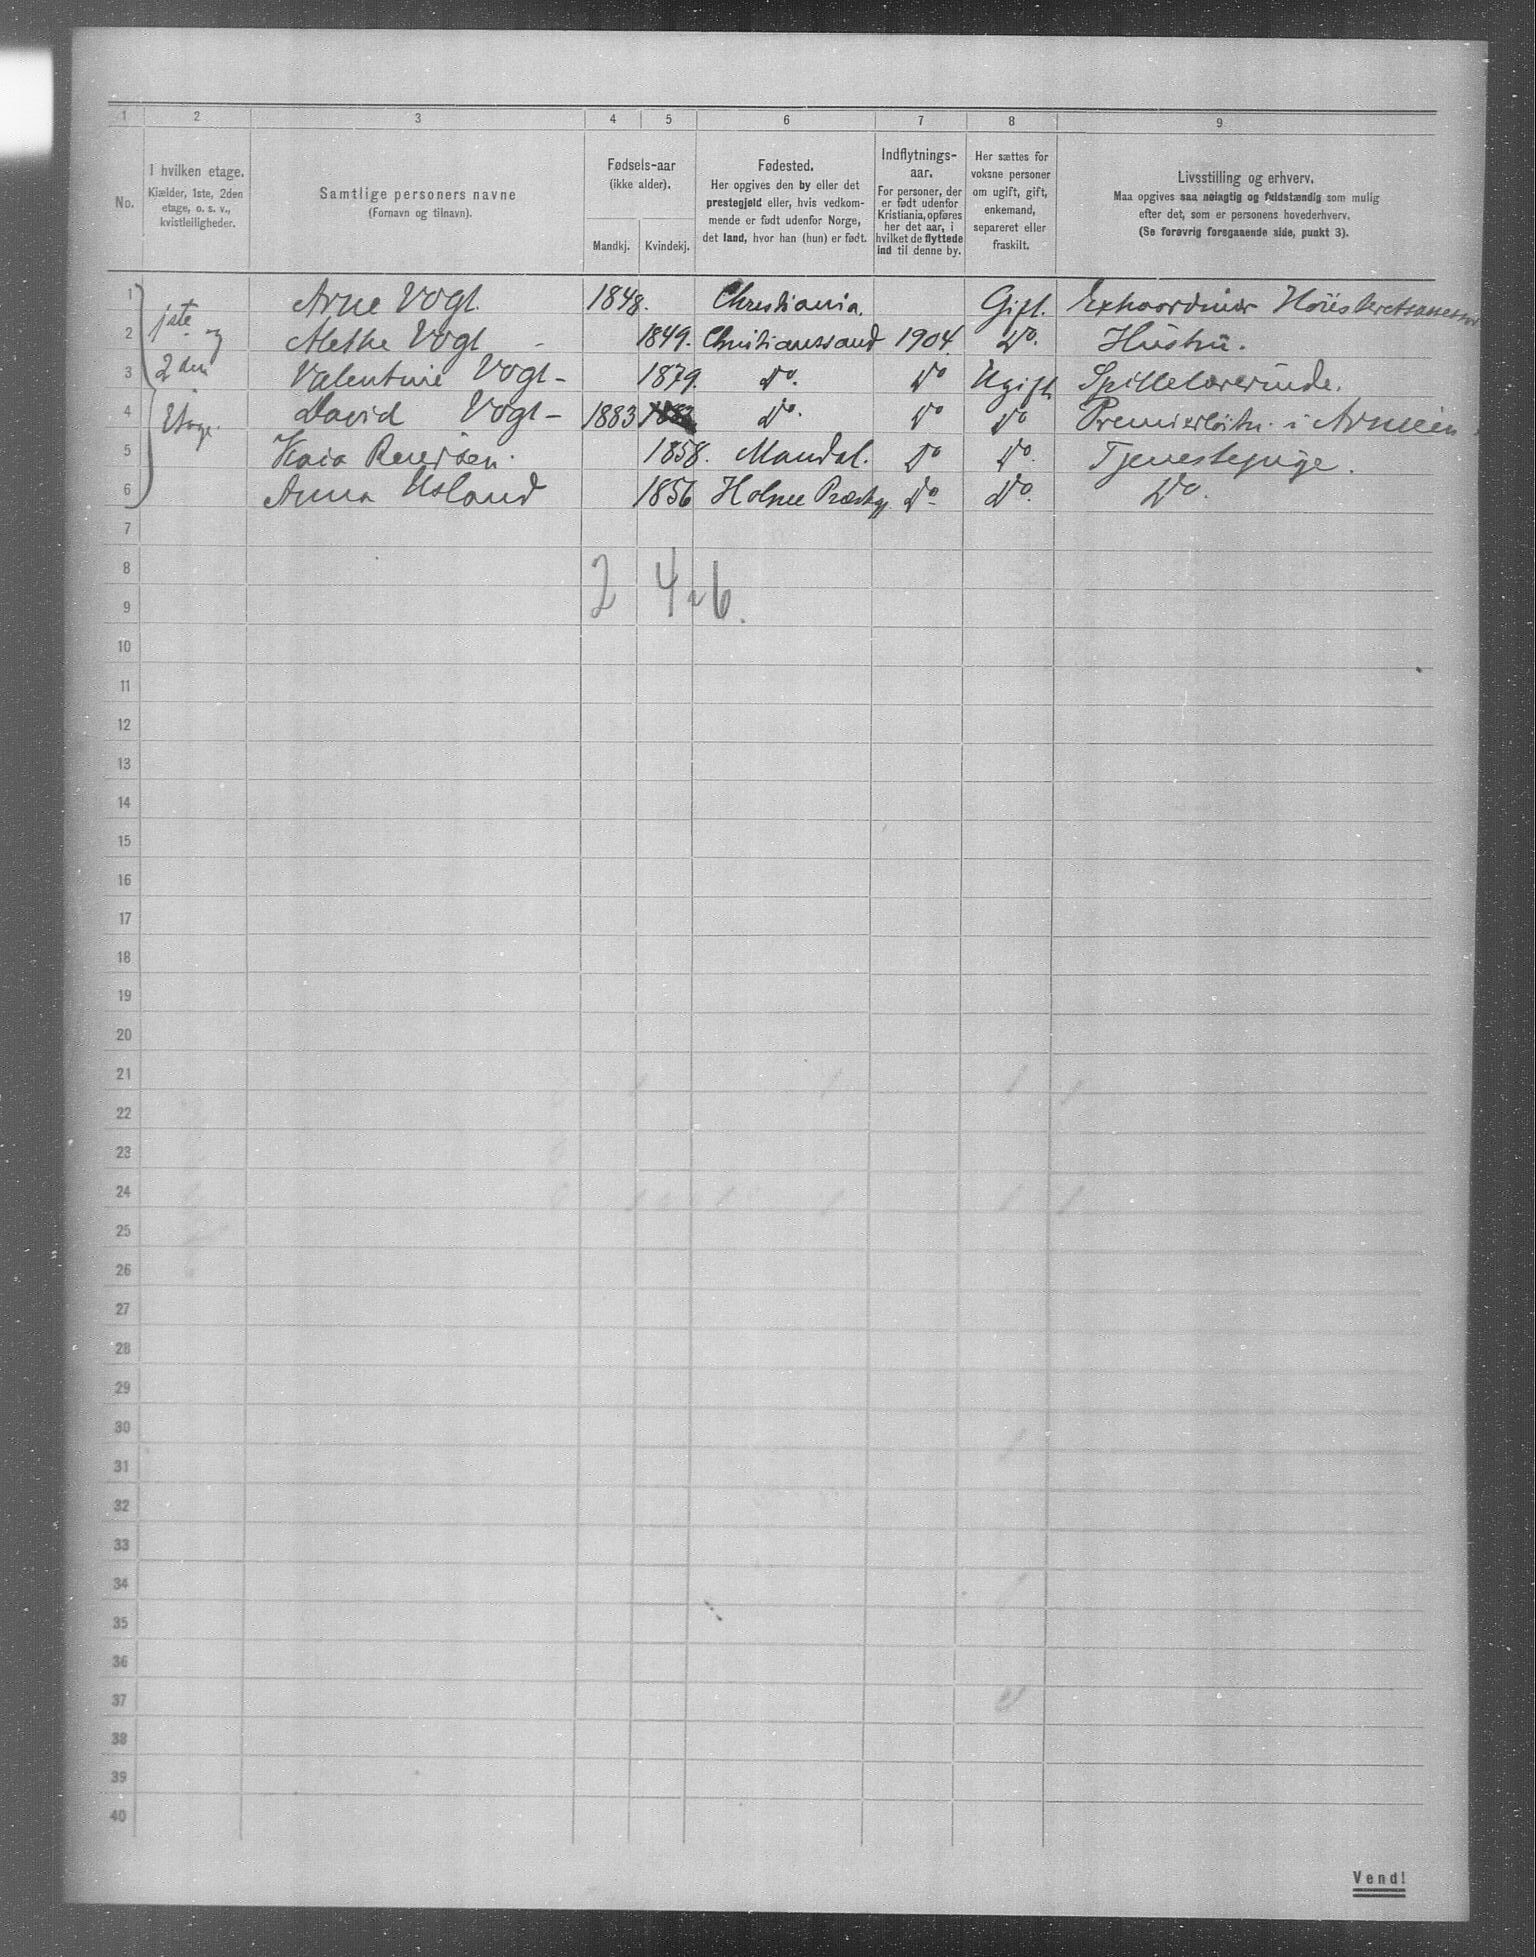 1 2 3 4 5 6 7 8 9
No.
I hvilken etage.
Kjælder, 1ste, 2den
etage, o. s. v.,
kvistleiligheder.
Samtlige personers navne
(Fornavn og tilnavn).
Fødsels-aar
(ikke alder).
Mandkj. Kvindekj.
Fødested.
Her opgives den by eller det
prestegjeld eller, hvis vedkom-
mende er født udenfor Norge,
det land, hvor han (hun) er født.
Indflytnings-
aar.
For personer, der
er født udenfor
Kristiania, opføres
her det aar, i
hvilket de flyttede
ind til denne by.
Her sættes for
voksne personer
om ugift, gift,
enkemand,
separeret eller
fraskilt.
Livsstilling og erhverv.
Maa opgives saa nøiagtig og fuldstændig som mulig
efter det, som er personens hovederhverv.
(Se forøvrig foregaaende side, punkt 3).
1ste og
2den
Etage.
1 Arne Vogt. 1848. Christiania. Gift. Extraordinær Høiesteretsassessor
2 Alethe Vogt - 1849. Christianssand 1904. Do. Hustru.
3 Valentine Vogt - 1879. Do. Do Ugift Spillelærerinde.
4 David Vogt - 1883 Do. Do Do Premierløitn. i Armeen.
5 Kaia 1858. Mandal. Do Do. Tjenestepige.
6 Anna Usland 1856 Holme Præstegj Do. Do. Do.
7
8
2 4 = 6.
9
10
11
12
13
14
15
16
17
18
19
20
21
22
23
24
25
26
27
28
29
30
31
32
33
34
35
36
37
38
39
40
Vend!